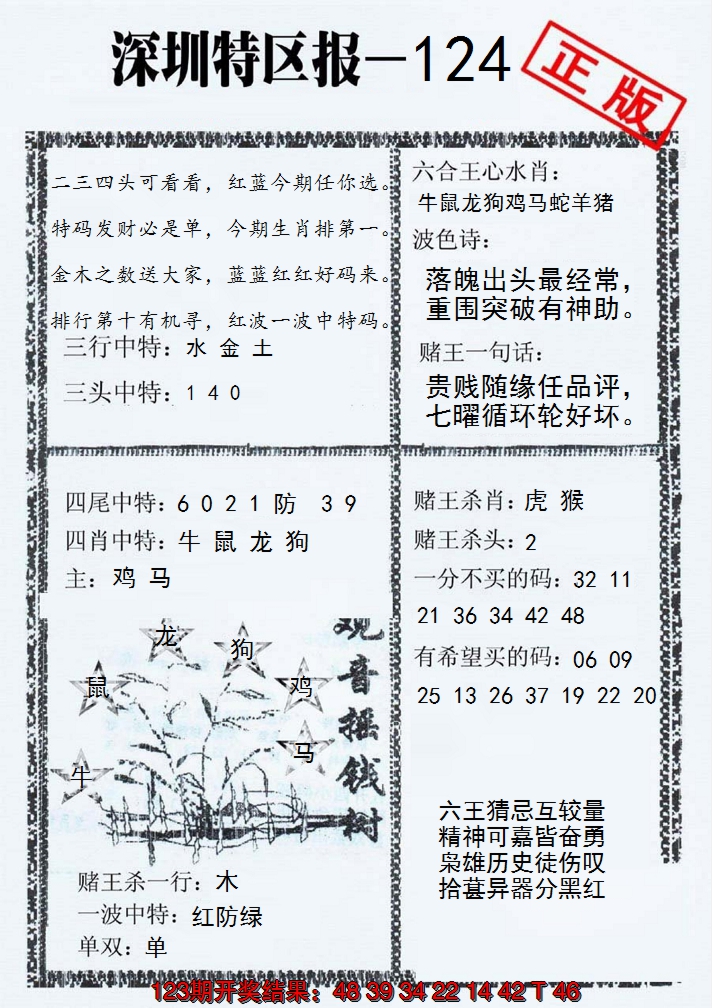 深圳特区报—124
正版
二三四头可看看，红蓝今期任你选。
特码发财必是单，今期生肖排第一。
金木之数送大家，蓝蓝红红好码来。
排行第十有机寻，红波一波中特码。
三行中特：水 金 土
三头中特：1 4 0
六合王心水肖：
牛鼠龙狗鸡马蛇羊猪
波色诗：
落魄出头最经常，
重围突破有神助。
赌王一句话：
贵贱随缘任品评，
七曜循环轮好坏。
四尾中特：6 0 2 1 防 3 9
四肖中特：牛 鼠 龙 狗
主：鸡 马
龙
狗
鼠
鸡
马
牛
观音摇钱树
赌王杀一行：木
一波中特：红防绿
单双：单
赌王杀肖：虎 猴
赌王杀头：2
一分不买的码：32 11
21 36 34 42 48
有希望买的码：06 09
25 13 26 37 19 22 20
六王猜忌互较量
精神可嘉皆奋勇
枭雄历史徒伤叹
拾葚异器分黑红
123期开奖结果：48 39 34 22 14 42 T 46